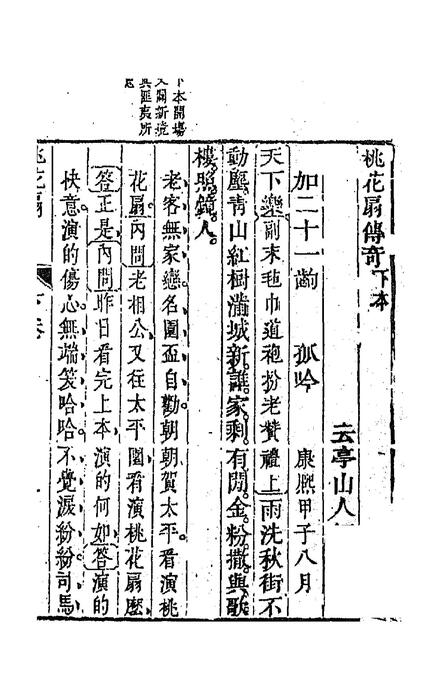 下本開場
又開新境
真匪夷所
思
桃花扇傳奇下本
云亭山人
加二十一齣　孤吟　康熙甲子八月
天下樂副末毡巾道袍扮老贊禮上雨洗秋街不
動塵青山紅樹滿城新誰家剩有閒金粉撒與歌
樓照鏡人
老客無家戀名園盃自勸朝朝賀太平看演桃
花扇内問老相公又往太平園看演桃花扇麼
答正是内問昨日看完上本演的何如答演的
快意演的傷心無端笑哈哈不覺淚紛紛司馬
桃花扇
下卷